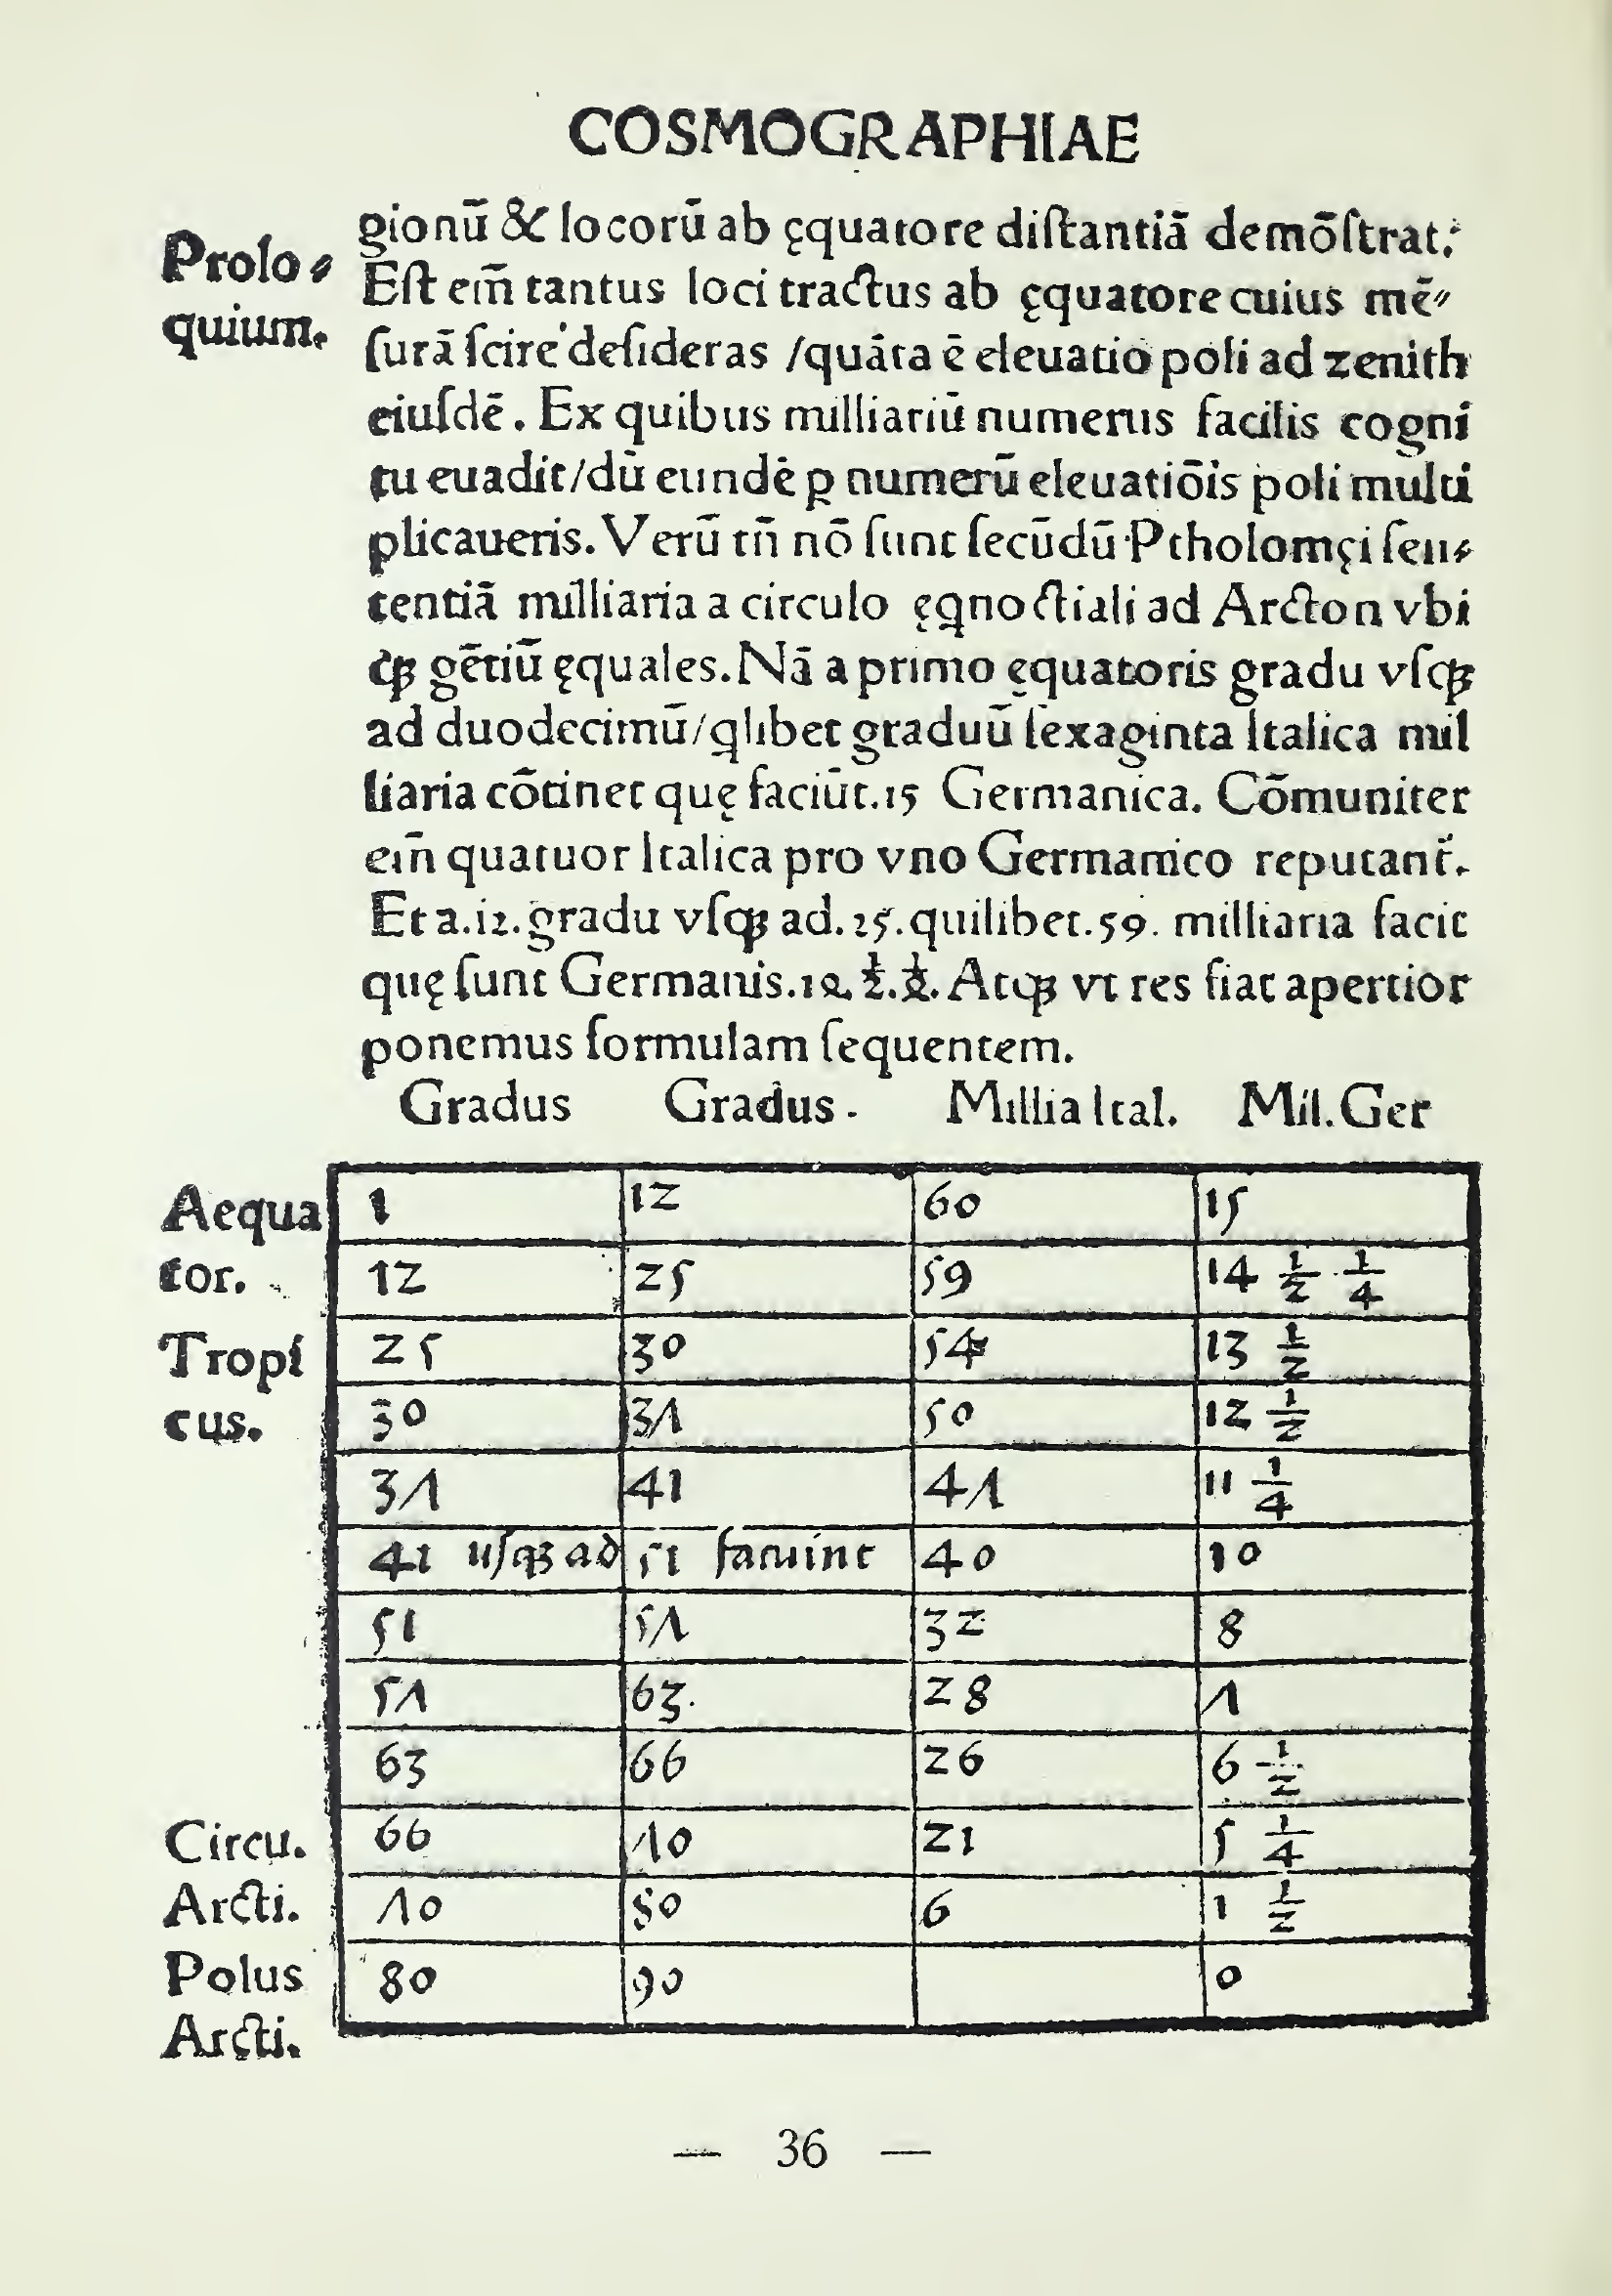 COSMOGRAPHIAE
Prolo⸗
quium.
gionū & locorū ab ęquatore diſtantiā demōſtrat:
Eſt em̄ tantus loci tractus ab ęquatore cuius mē⸗
ſurā ſcire deſideras /quāta ē eleuatio poli ad zenith
eiuſdē. Ex quibus milliariū numerus facilis cogni
tu euadit/dū eundē ꝑ numerū eleuatiōis poli multi
plicaueris. Verū tn̄ nō ſunt ſecūdū Ptholomęi ſen⸗
tentiā milliaria a circulo ęqnoctiali ad Arcton vbi
qꝫ gētiū ęquales. Nā a primo ęquatoris gradu vſqꝫ
ad duodecimū/qlibet graduū ſexaginta Italica mil
liaria cōtinet quę faciūt.15 Germanica. Cōmuniter
em̄ quatuor Italica pro vno Germanico reputant̄.
Et a.12.gradu vſqꝫ ad.25.quilibet.59. milliaria facit
quę ſunt Germanis. Atqꝫ vt res fiat apertior
ponemus formulam ſequentem.
Gradus Gradus. Millia Ital. Mil. Ger
Aequa
tor.
Tropi
cus.
1 12 60 15
12 25 59 14 1/2 1/4
25 30 54 13 1/2
30 37 50 12 1/2
37 41 47 11 1/4
41 uſqꝫ ad 51 faciunt 40 10
51 57 32 8
57 63. 28 7
63 66 26 6 1/2
66 70 21 5 1/4
70 80 6 1 1/2
80 90 0
Circu.
Arcti.
Polus
Arcti.
— 36 —